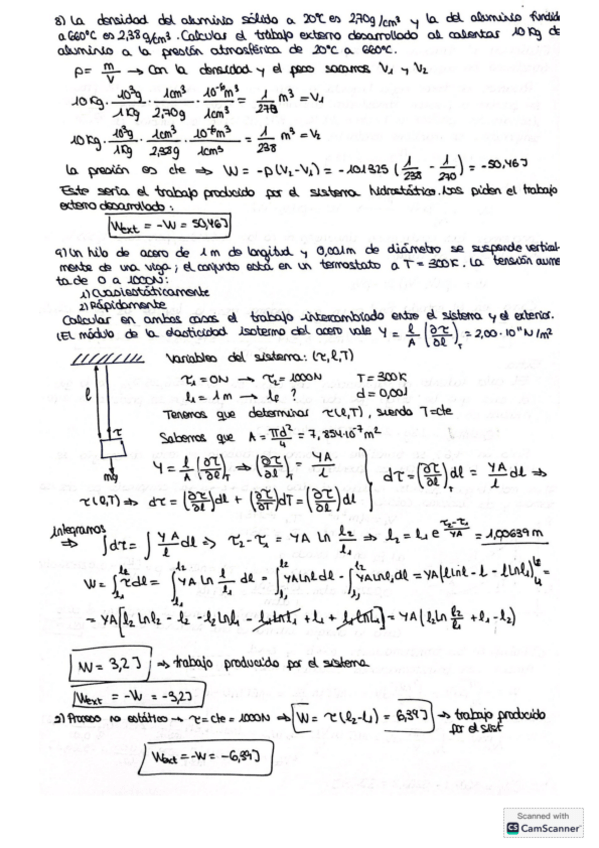 8) La densidad del aluminio sólido a 20°C es 2,70 g/cm³ y la del aluminio fundid
a 660°C es 2,38 g/cm³. Calcular el trabajo externo desarrollado al calentar 10 Kg de
aluminio a la presión atmosférica de 20°C a 660°C.
ρ = m/V → Con la densidad y el peso sacamos V₁ y V₂
10 Kg · 10³g/1 Kg · 1cm³/2,70g · 10⁻⁶m³/1cm³ = 1/270 m³ = V₁
10 Kg · 10³g/1 Kg · 1cm³/2,38g · 10⁻⁶m³/1cm³ = 1/238 m³ = V₂
La presión es cte ⇒ W = -p(V₂-V₁) = -101325 (1/238 - 1/270) = -50,46J
Este sería el trabajo producido por el sistema hidrostático. Nos piden el trabajo
externo desarrollado:
Wext = -W = 50,46J
9) Un hilo de acero de 1 m de longitud y 0,001m de diámetro se suspende vertical-
mente de una viga; el conjunto está en un termostato a T = 300K. La tensión aume
ta de 0 a 1000N:
1) Cuasiestáticamente
2) Rápidamente
Calcular en ambos casos el trabajo intercambiado entre el sistema y el exterior.
(El módulo de la elasticidad isotermo del acero vale Y = ℓ/A (∂τ/∂ℓ)_T = 2,00·10¹¹ N/m²
Variables del sistema: (τ, ℓ, T)
τ₁ = 0N → τ₂ = 1000N T = 300K
ℓ₁ = 1m → ℓf ? d = 0,001
ℓ
Tenemos que determinar τ(ℓ,T), siendo T=cte
τ
Sabemos que A = πd²/4 = 7,854·10⁻⁷m²
mg
Y = ℓ/A (∂τ/∂ℓ)_T ⇒ (∂τ/∂ℓ)_T = YA/ℓ
dτ = (∂τ/∂ℓ)_T dℓ = YA/ℓ dℓ ⇒
τ(ℓ,T) ⇒ dτ = (∂τ/∂ℓ)dℓ + (∂τ/∂T)dT = (∂τ/∂ℓ)dℓ
Integramos
⇒ ∫dτ = ∫ YA/ℓ dℓ ⇒ τ₂-τ₁ = YA ln ℓ₂/ℓ₁ ⇒ ℓ₂ = ℓ₁ e^(τ₂-τ₁/YA) = 1,00639 m
W = ∫τdℓ = ∫YA ln ℓ/ℓ₁ dℓ = ∫YA lnℓ dℓ - ∫YA lnℓ₁ dℓ = YA(ℓ lnℓ - ℓ - ℓ lnℓ₁) =
= YA[ℓ₂ lnℓ₂ - ℓ₂ - ℓ₂ lnℓ₁ - ℓ₁ lnℓ₁ + ℓ₁ + ℓ₁ lnℓ₁] = YA(ℓ₂ ln ℓ₂/ℓ₁ + ℓ₁ - ℓ₂)
W = 3,2J ⇒ trabajo producido por el sistema
Wext = -W = -3,2J
2) Proceso no estático → τ = cte = 1000N ⇒ W = τ(ℓ₂-ℓ₁) = 6,39J → trabajo producido
por el sist
Wext = -W = -6,39J
Scanned with
CS CamScanner